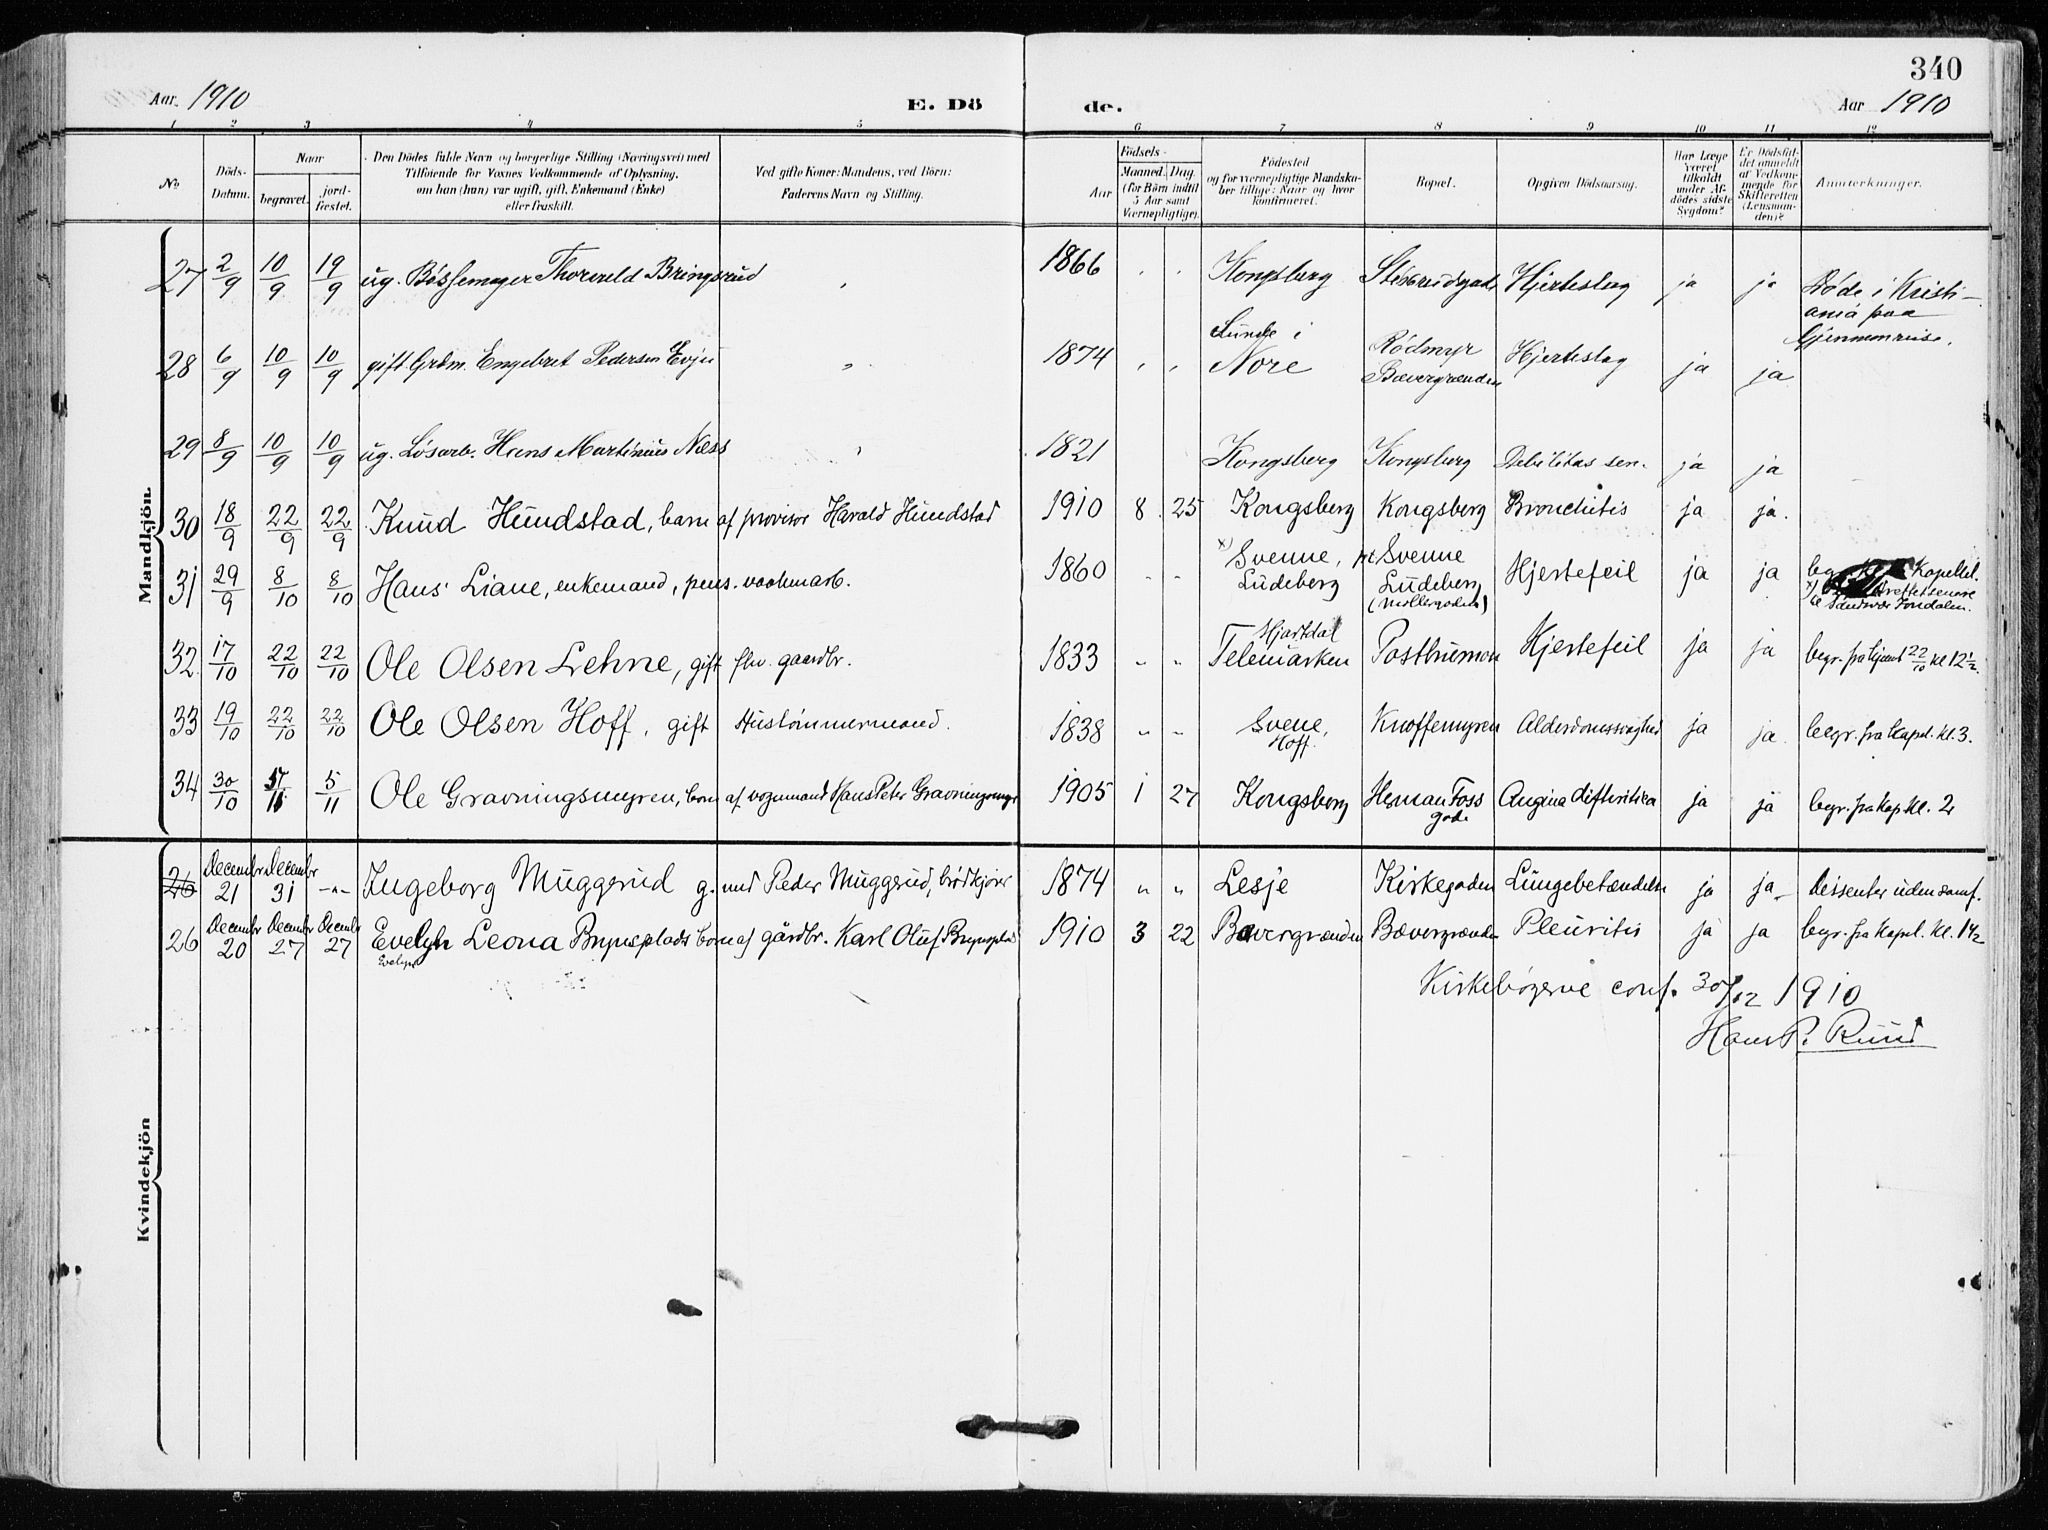 340
Aar 1910 E. Dö de. Aar 1910
1 2 3 4 5 6 7 8 9 10 11 12
No
Döds-Datum.
Naar
begravet.
jord-fæstet.
Den Dödes fulde Navn og borgerlige Stilling (Næringsvei) med
Tilföiende for Voxnes Vedkommende af Oplysning,
om han (hun) var ugift, gift, Enkemand (Enke)
eller fraskilt.
Ved gifte Koner: Mandens, ved Börn:
Faderens Navn og Stilling.
Födsels-
Aar
Maaned. Dag.
(for Börn indtil
5 Aar samt
Værnepligtige).
Födested
og for værnepligtige Mandska-
ber tillige: Naar og hvor
konfirmeret.
Bopæl.
Opgiven Dödsaarsag.
Har Læge
været
tilkaldt
under Af-
dödes sidste
Sygdom?
Er Dödsfal-
det anmeldt
af Vedkom-
mende for
Skifteretten
(Lensman-
den)?
Anmærkninger.
Mandkjön.
27 2/9 10/9 19/9 ug. Bøssemager Thorvald Bringsrud " 1866 " " Kongsberg Hjerteslag ja ja Døde i Kristi-
ania paa
Gjennemreise.
28 6/9 10/9 10/9 gift Grdm. Engebret Pedersen Evju " 1874 " " Lunde i
Nore Rødmyr
Bævergrænden Hjerteslag ja ja
29 8/9 10/9 10/9 ug. Løsarb. Hans Martinius Næss " 1821 Kongsberg Kongsberg Debilitas sen. ja ja
30 18/9 22/9 22/9 Knud Hundstad, barn af provisor Harald Hundstad 1910 8 25 Kongsberg Kongsberg Bronchitis ja ja.
31 29/9 8/10 8/10 Hans Liane, enkemand, pens. vaabenarb. 1860 " " Svenne,
Ludeberg Svenne
Ludeberg
(Møllergaden) Hjertefeil ja ja begr. Kapellet.
Sandsvær Jondalen.
32 17/10 22/10 22/10 Ole Olsen Lehne, gift fhv. gaardbr. 1833 " " Hjartdal
Telemarken Posthuemoen Hjertefeil ja ja begr. fra hjemt 22/10 kl 12 1/2.
33 19/10 22/10 22/10 Ole Olsen Hoff, gift Hustømmermand. 1838 " " Svene,
Hoff. Knoffemyren Alderdomssvaghed ja ja. begr. fra kapel. kl. 3.
34 30/10 5/11 5/11 Ole Gravningsmyren, barn af vognmand Hans Peter Gravningsmyr 1905 1 27 Kongsberg Herman Foss
gade Angina difteritica ja ja begr. fra kap kl. 2
Kvindekjön
26 Decembr 21 Decembr 31 -"- Ingeborg Muggerud g. med Peder Muggerud, brødkjører 1874 " " Lesje Kirkegaden Lungebetændelse ja ja- Dissenter uden samf.
26 Decembr 20 Decembr 27 Decembr 27 Evelyn Leona Brynsplads barn af gårdbr. Karl Oluf Brynsplads 1910 3 22 Bævergrænden Bævergrænden Pleuritis ja ja begr. fra kapel. kl. 1 1/2
Evelyn
Kirkebøgerne conf. 30/12 1910
Hans P. Ruud